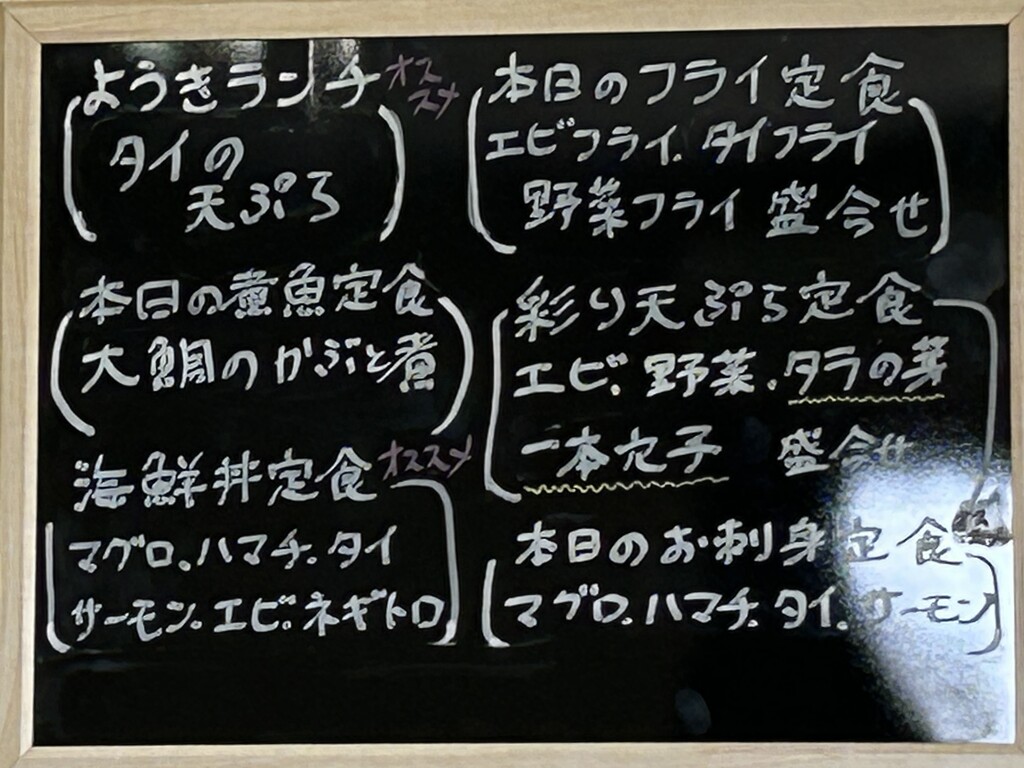 ようきランチ オススメ
タイの
天ぷら
本日の煮魚定食
大鯛のかぶと煮
海鮮丼定食 オススメ
マグロ.ハマチ.タイ
サーモン.エビ.ネギトロ
本日のフライ定食
エビフライ.タイフライ
野菜フライ 盛合せ
彩り天ぷら定食
エビ.野菜.タラの芽
一本穴子 盛合せ
本日のお刺身定食
マグロ.ハマチ.タイ.サーモン